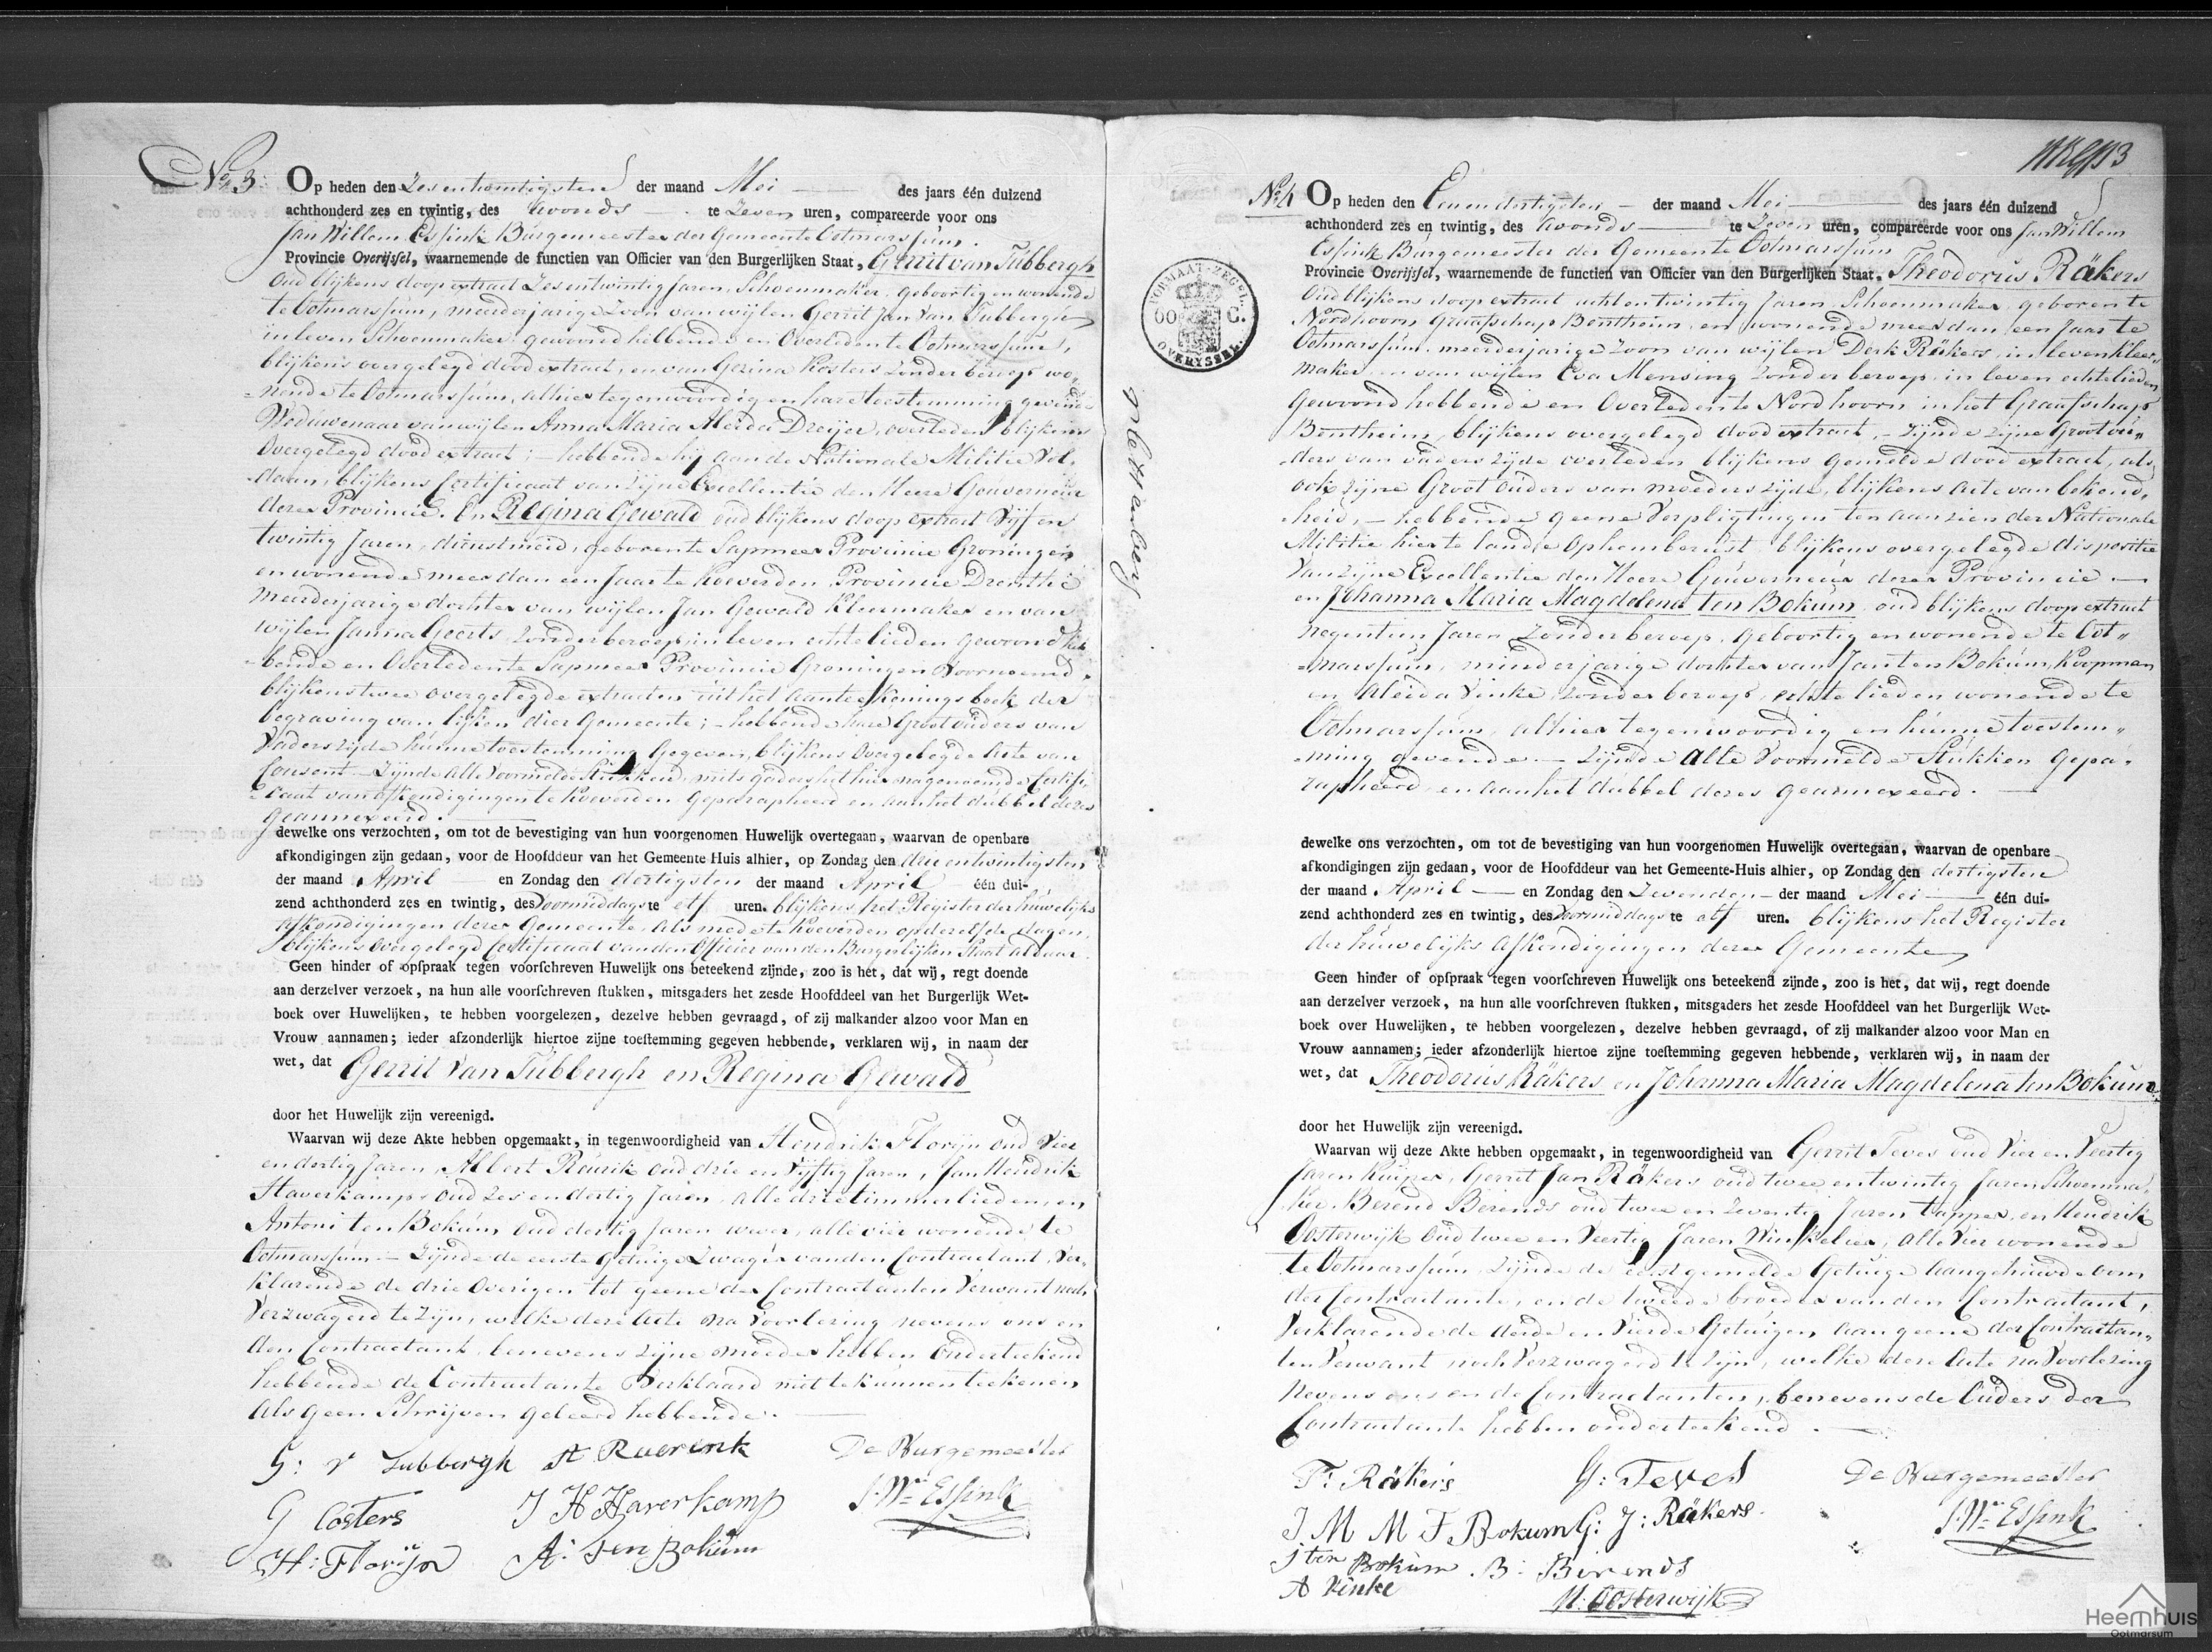 No 3. Op heden den Zesentwintigsten der maand Mei des jaars één duizend
achthonderd zes en twintig, des Avonds te Zeven uren, compareerde voor ons
Jan Willem Essink Burgemeester der Gemeente Ootmarssum.
Provincie Overijssel, waarnemende de functien van Officier van den Burgerlijken Staat, Gerrit van Tubbergh
Oud blijkens doop extract Zesentwintig Jaren, Schoenmaker, geboortig en wonende
te Ootmarssum, meerderjarige Zoon van wijlen Gerrit Jan van Tubbergh
in leven Schoenmaker, gewoond hebbende en Overleden te Ootmarssum,
blijkens overgelegd dood extract, en van Gezina Kosters zonder beroep wo„
„nende te Ootmarssum, alhier tegenwoordig en hare toestemming gevende
Weduwenaar van wijlen Anna Maria Aleida Dreijer, overleden blijkens
Overgelegd dood extract; – hebbende hij aan de Nationale Militie Vol„
„daan, blijkens Certificaat van Zijne Excellentie den Heere Gouverneur
dezer Provincie. En Regina Gewald oud blijkens doop extract Vijf en
twintig Jaren, dienstmeid, geboren te Sapmeer Provincie Groningen
en wonende meer dan een Jaar te Koevorden Provincie Drenthe
Meerderjarige dochter van wijlen Jan Gewald Kleermaker en van
wijlen Janna Geerts zonder beroep in leven echtelieden gewoond heb
„bende en Overleden te Sapmeer Provincie Groningen Voornoemd,
blijkens twee overgelegde extracten uit het aanteekenings boek der
begraving van lijken dier Gemeente; – hebbende hare Grootouders van
Vaders zijde hunne toestemming gegeven, blijkens Overgelegde Acte van
Consent. Zijnde alle voormelde Stukken, mits gaders het hier nagenoemde Certifi„
„caat van afkondigingen te Koevorden Geparapheerd en aan het dubbel dezes
geannexeerd.
dewelke ons verzochten, om tot de bevestiging van hun voorgenomen Huwelijk overtegaan, waarvan de openbare
afkondigingen zijn gedaan, voor de Hoofddeur van het Gemeente Huis alhier, op Zondag den drie en twintigsten
der maand April en Zondag den dertigsten der maand April één dui-
zend achthonderd zes en twintig, des Voormiddags te elf uren. blijkens het Register der huwelijks
afkondigingen dezer Gemeente, als mede te Koevorden op dezelfde dagen,
blijkens overgelegd Certificaat van den Officier van den Burgerlijken Staat aldaar.
Geen hinder of opspraak tegen voorschreven Huwelijk ons beteekend zijnde, zoo is het, dat wij, regt doende
aan derzelver verzoek, na hun alle voorschreven stukken, mitsgaders het zesde Hoofddeel van het Burgerlijk Wet-
boek over Huwelijken, te hebben voorgelezen, dezelve hebben gevraagd, of zij malkander alzoo voor Man en
Vrouw aannamen; ieder afzonderlijk hiertoe zijne toestemming gegeven hebbende, verklaren wij, in naam der
wet, dat Gerrit van Tubbergh en Regina Gewald
door het Huwelijk zijn vereenigd.
Waarvan wij deze Akte hebben opgemaakt, in tegenwoordigheid van Hendrik Florijn oud Vier
en dertig Jaren, Albert Reurik oud drie en Vijftig Jaren, Jan Hendrik
Haverkamp oud zes en dertig Jaren, alle drie timmerlieden, en
Antoni ten Bokum oud dertig Jaren wever, alle vier wonende te
Ootmarssum – Zijnde de eerste Getuige Zwager van den Contractant, Ver„
klarende de drie Overigen tot geene der Contractanten Verwant noch
Verzwagerd te Zijn, welke deze Acte na Voorlezing nevens ons en
den Contractant, benevens zijne moeder hebben Onderteekend
hebbende de Contractante Verklaard niet te kunnen teekenen
als geen Schrijven geleerd hebbende.
G: v Tubbergh A Ruerink De Burgemeester
G Costers J H Haverkamp J. Wm Essink
H: Florijn A: ten Bokum
3
No 4 Op heden den Eenendertigsten der maand Mei des jaars één duizend
achthonderd zes en twintig, des Avonds te Zeven uren, compareerde voor ons Jan Willem
Essink Burgemeester der Gemeente Ootmarssum
Provincie Overijssel, waarnemende de functien van Officier van den Burgerlijken Staat, Theodorus Räkers
Oud blijkens doop extract achtentwintig Jaren, Schoenmaker, geboren te
Nordhoorn Graafschap Bentheim, en wonende meer dan een Jaar te
Ootmarssum, meerderjarige Zoon van wijlen Derk Räkers, in leven Kleer„
maker en van wijlen Eva Mensing zonder beroep, in leven echtelieden,
Gewoond hebbende en Overleden te Nordhoorn in het Graafschap
Bentheim, blijkens overgelegd dood extract, – zijnde zijne Grootou„
„ders van vaders zijde overleden blijkens gemelde dood extract, als
ook zijne Groot ouders van moeders zijde, blijkens acte van bekend„
„heid, – hebbende geene Verpligtingen ten aanzien der Nationale
Militie hier te lande op hem berust blijkens overgelegde dispositie
van zijne Excellentie den Heere Gouverneur dezer Provincie. —
en Johanna Maria Magdelena ten Bokum, oud blijkens doop extract
negentien Jaren zonder beroep, geboortig en wonende te Oot„
„marssum, minderjarige dochter van Jan ten Bokum, Koopman
en Aleida Vinke, zonder beroep, echte lieden wonende te
Ootmarssum, alhier tegenwoordig en hunne toestem„
„ming gevende. — Zijnde alle Voormelde Stukken gepa„
rapheerd, en aan het dubbel dezes geannexeerd. —
dewelke ons verzochten, om tot de bevestiging van hun voorgenomen Huwelijk overtegaan, waarvan de openbare
afkondigingen zijn gedaan, voor de Hoofddeur van het Gemeente-Huis alhier, op Zondag den dertigsten
der maand April en Zondag den Zevenden der maand Mei één dui-
zend achthonderd zes en twintig, des Voormiddags te elf uren. blijkens het Register
der huwelijks afkondigingen dezer Gemeente
Geen hinder of opspraak tegen voorschreven Huwelijk ons beteekend zijnde, zoo is het, dat wij, regt doende
aan derzelver verzoek, na hun alle voorschreven stukken, mitsgaders het zesde Hoofddeel van het Burgerlijk Wet-
boek over Huwelijken, te hebben voorgelezen, dezelve hebben gevraagd, of zij malkander alzoo voor Man en
Vrouw aannamen; ieder afzonderlijk hiertoe zijne toestemming gegeven hebbende, verklaren wij, in naam der
wet, dat Theodorus Räkers en Johanna Maria Magdelena ten Bokum
door het Huwelijk zijn vereenigd.
Waarvan wij deze Akte hebben opgemaakt, in tegenwoordigheid van Gerrit Teves oud Vier en Veertig
Jaren Kuiper, Gerrit Jan Räkers oud twee en twintig Jaren Schoenma„
ker, Berend Berends oud twee en zeventig Jaren tapper, en Hendrik
Oosterwijk Oud twee en Veertig Jaren Winkelier, alle Vier wonende
te Ootmarssum, Zijnde de eerst gemelde Getuige aangehuwde oom
der Contractante, en de tweede broeder van den Contractant,
Verklarende de derde en Vierde Getuigen aan geene der Contractan„
ten Verwant noch Verzwagerd te zijn, welke deze Acte na Voorlezing
Nevens ons en de Contractanten, benevens de Ouders der
Contractante hebben onderteekend.
T: Räkers G: Teves De Burgemeester
J. M M T Bokum G: J: Räkers. J. Wm Essink
J ten Bokum B: Berends
A Vinke H: Oosterwijk
FORMAAT-ZEGEL.
60 C.
OVERYSSEL.
Heemhuis
Ootmarsum